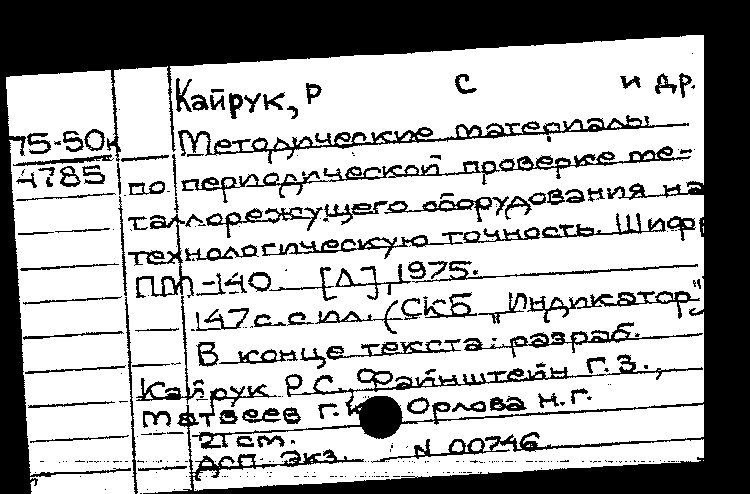 Кайрук, Р С и др.
75-50н Методические материалы
4785 по периодической проверке ме-
таллорежущего оборудования на
технологическую точность. Шифр
ПМ-140. [Л], 1975.
147 с. с ил. (СКБ "Индикатор")
В конце текста: разраб.
Кайрук Р.С., Файнштейн Г.З.,
Матвеев Г.К. Орлова Н.Г.
21 см.
ДСП. Экз. N 00746